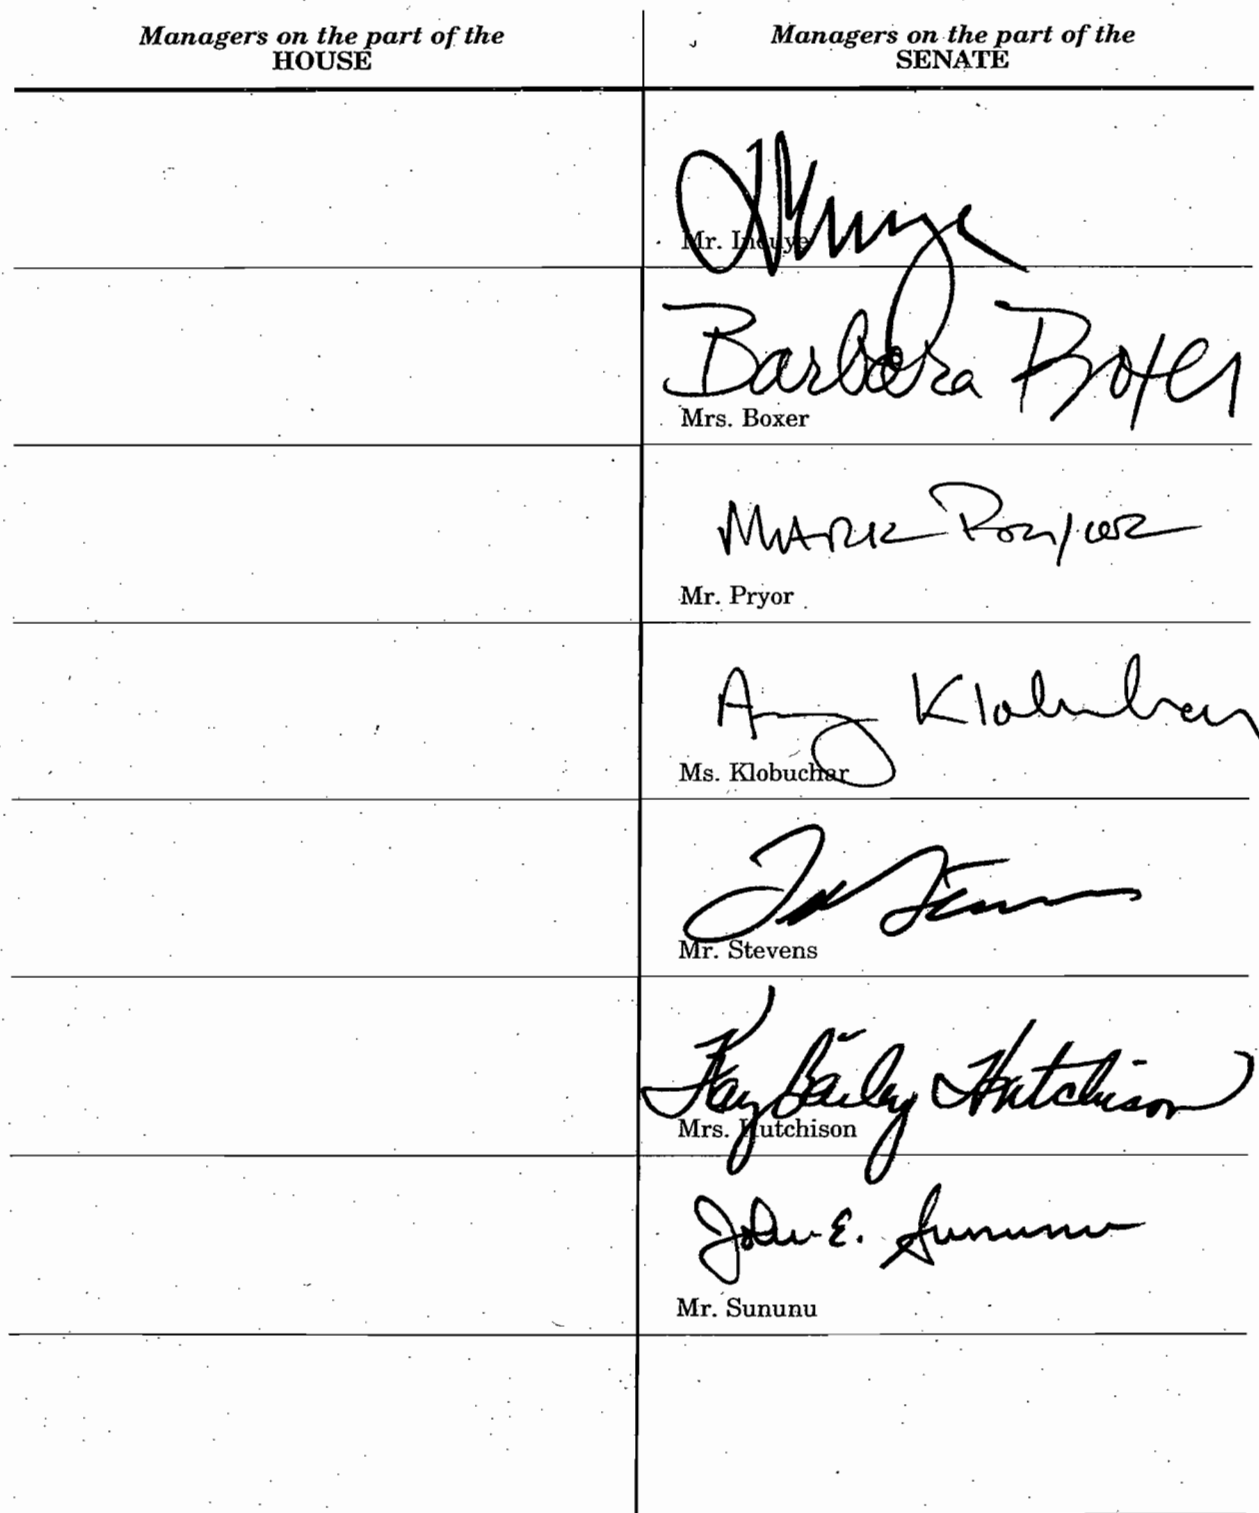 Managers on the part of the
HOUSE
Managers on the part of the
SENATE
Mr. Inouye
Barbara Boxer
Mrs. Boxer
MARK PRYOR
Mr. Pryor
Amy Klobuchar
Ms. Klobuchar
Ted Stevens
Mr. Stevens
Kay Bailey Hutchison
Mrs. Hutchison
John E. Sununu
Mr. Sununu